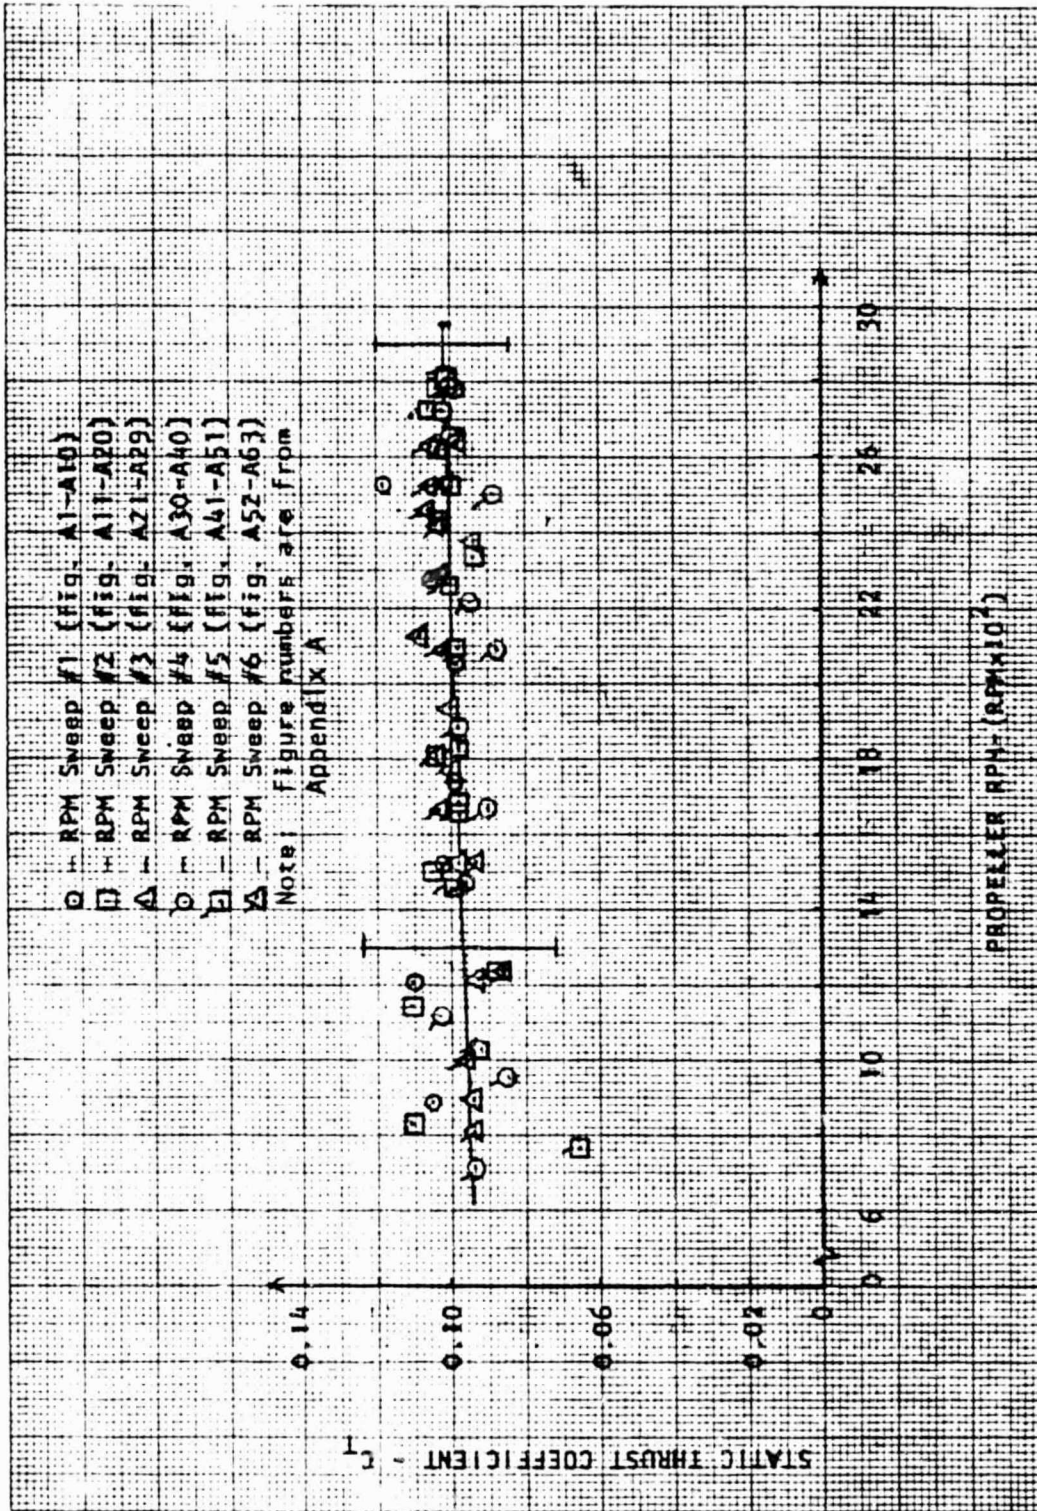 - RPM Sweep #1 (fig. A1-A10)
- RPM Sweep #2 (fig. A11-A20)
- RPM Sweep #3 (fig. A21-A29)
- RPM Sweep #4 (fig. A30-A40)
- RPM Sweep #5 (fig. A41-A51)
- RPM Sweep #6 (fig. A52-A63)
Note: figure numbers are from
Appendix A
STATIC THRUST COEFFICIENT - CT
0.14
0.10
0.06
0.02
0
0 6 10 14 18 22 26 30
PROPELLER RPM-(RPMx10²)